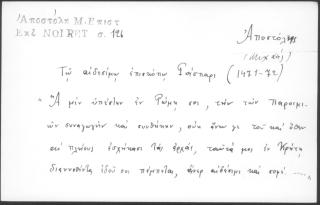 Ἀποστόλη Μ. Ἐπιστ
Ἐκδ NOIRET σ. 126
Ἀποστόλης
(Μιχαήλ)
Τῷ αἰδεσίμῳ ἐπισκόπῳ Γάσπαρι (1471-72)
"Ἃ μὲν ὑπέσχον ἐν Ῥώμῃ σοι, τὴν τῶν Παροιμι-
ῶν συναγωγὴν καὶ συνθήκην, οὐκ ἄνευ γε τοῦ καὶ ὅθεν
αἱ πλείους ἐσχήκασι τὰς ἀρχάς, ταῦτά μοι ἐν Κρήτῃ
διανυσθέντα ἰδού σοι πέμπεται, ἄνερ αἰδέσιμε καὶ σοφέ .....